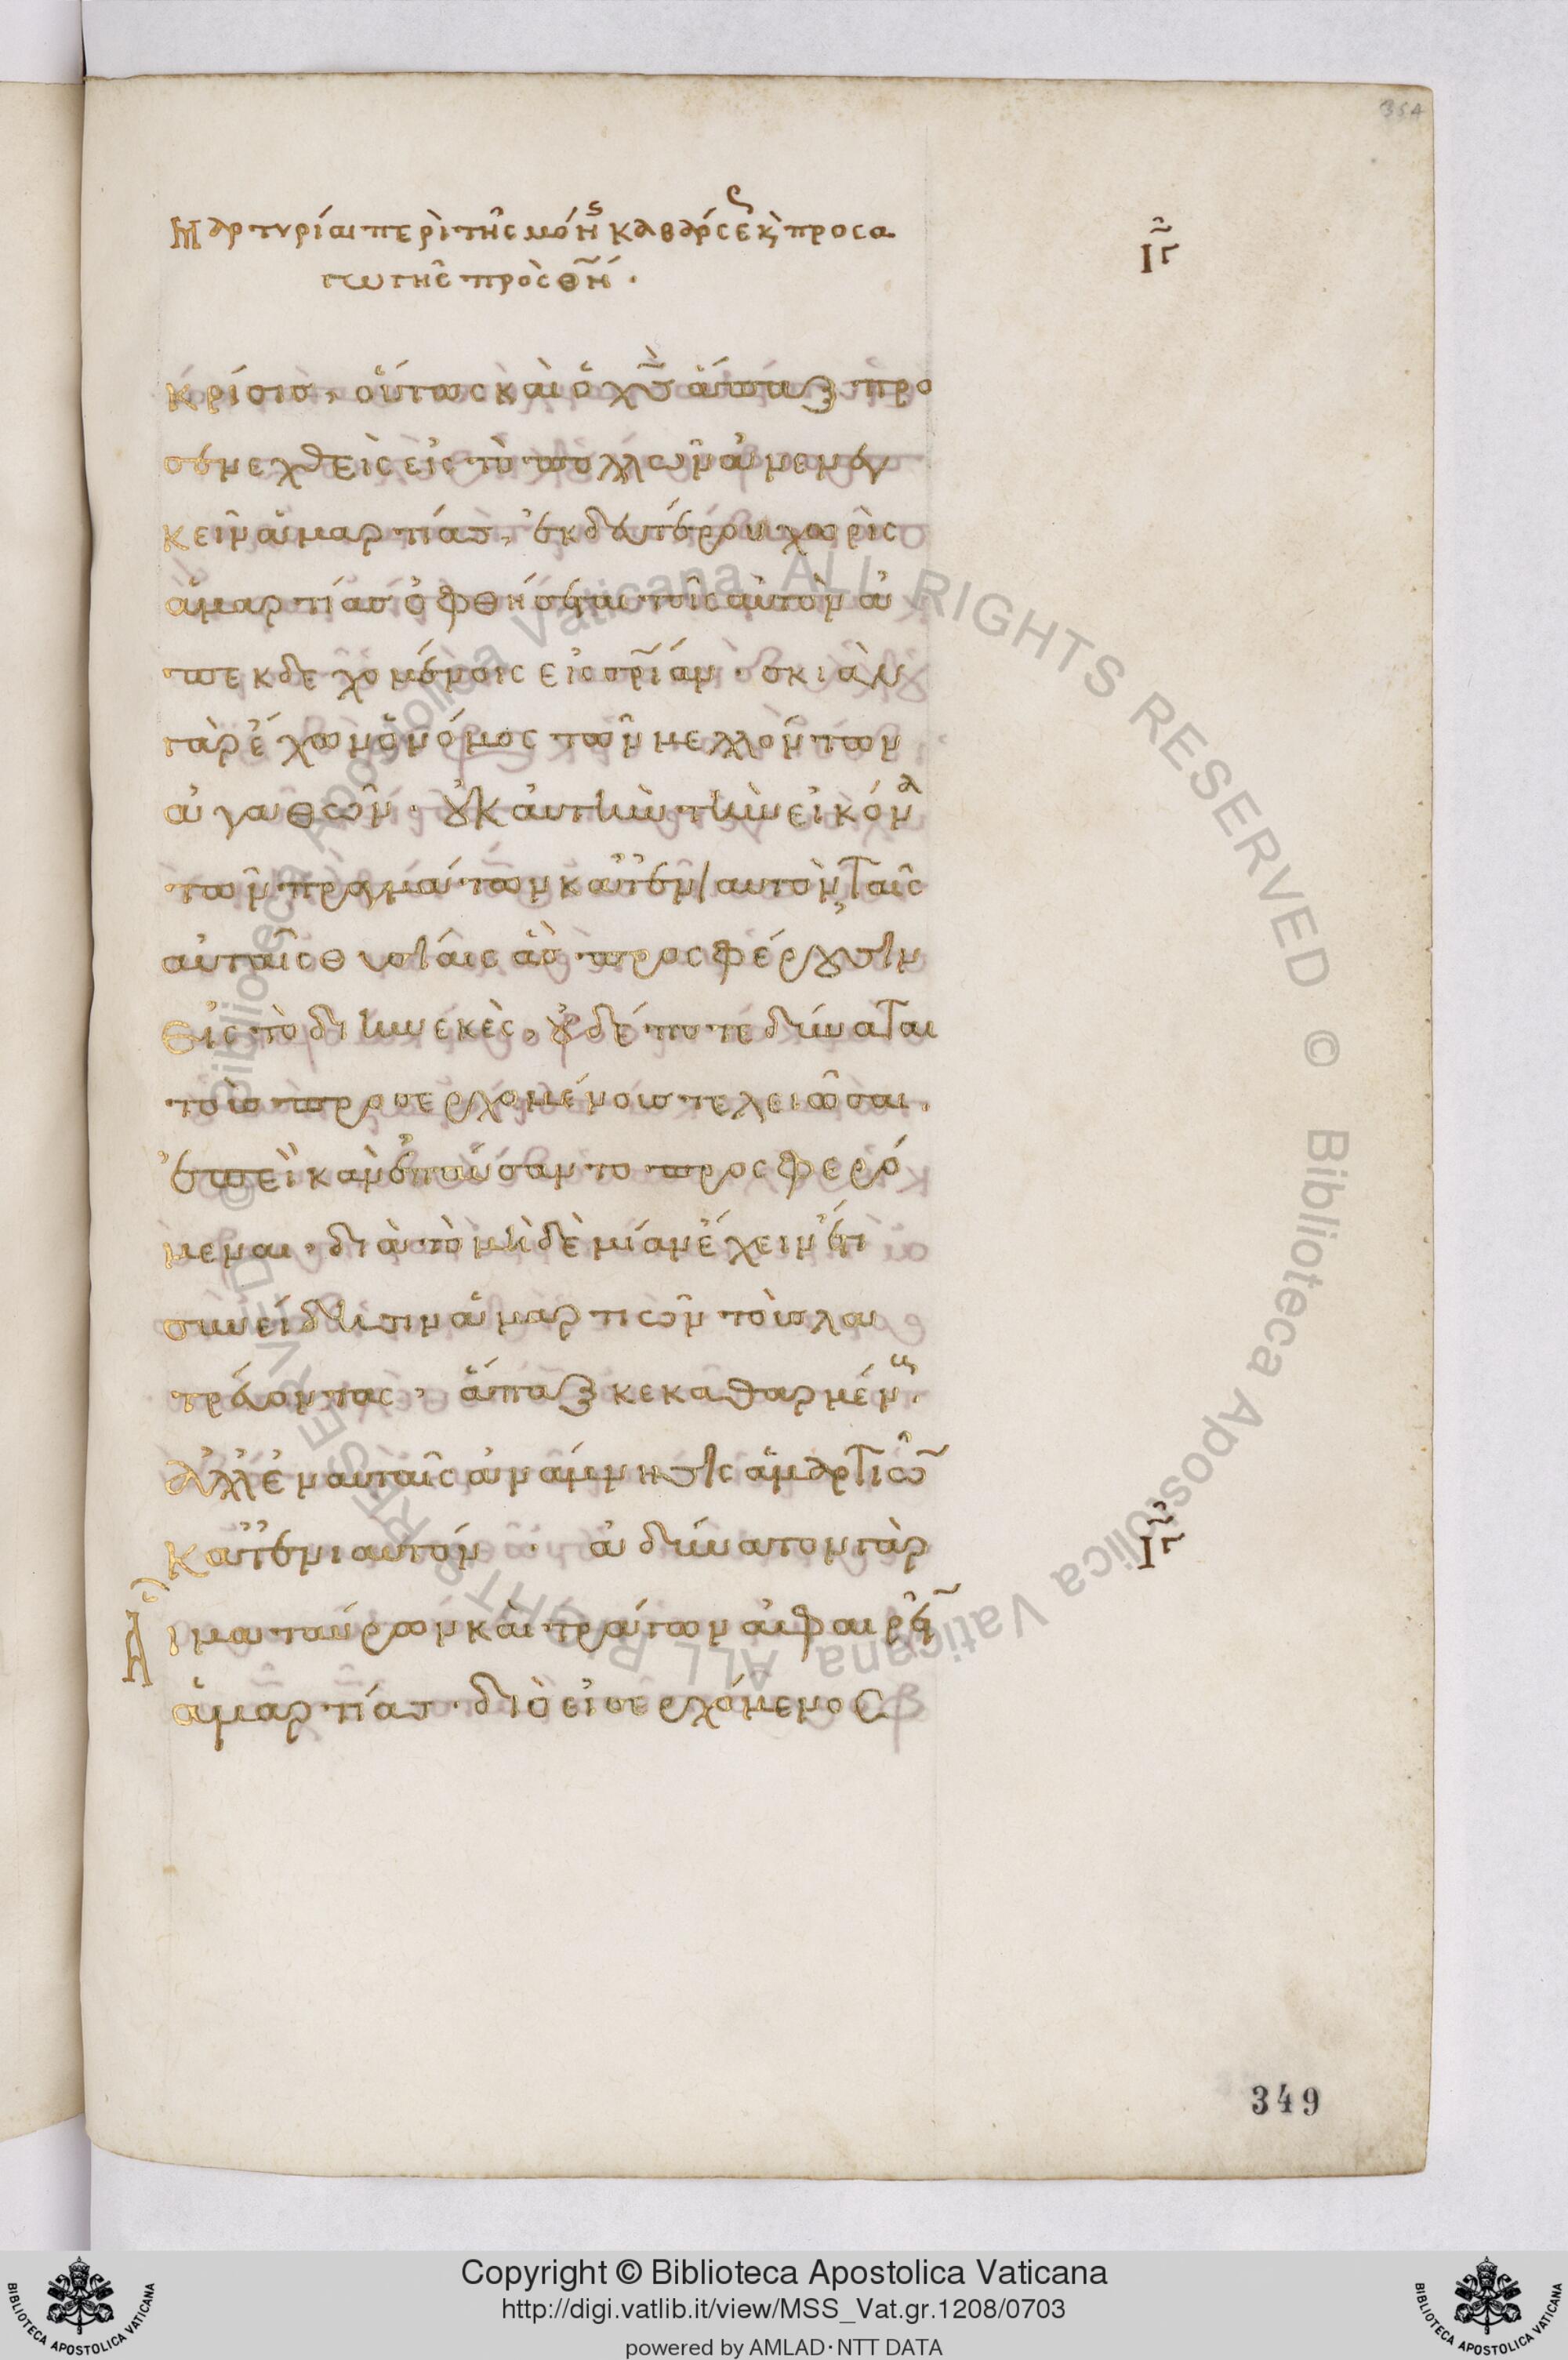 354
Μαρτυρίαι περὶ τῆς μόνης καθάρσε κ προσα
γωγῆς πρὸς θν.
ιγ
κρίσις, οὕτως καὶ ὁ χς ἅπαξ προ
σενεχθεὶς εἰς τὸ πολλῶν ἀνενεγ
κεῖν ἁμαρτίας, ἐκ δευτέρου χωρὶς
ἁμαρτίας ὀφθήσεται τοῖς αὐτὸν ἀ
πεκδεχομένοις εἰς σρίαν. σκιὰν
γὰρ ἔχων ὁ νόμος τῶν μελλόντων
ἀγαθῶν. οὐκ αὐτὴν τὴν εἰκόνα
τῶν πραγμάτων κατ' ἐνιαυτὸν, ταῖς
αὐταῖς θυσίαις ἃς προσφέρουσιν
εἰς τὸ διηνεκὲς, οὐδέποτε δύναται
τοὺς προσερχομένους τελειῶσαι.
ἐπεὶ κἂν ἐπαύσαντο προσφερό
μεναι. διὰ τὸ μὴδὲ μίαν ἔχειν ἔτι
συνείδησιν ἁμαρτιῶν τοὺς λα
τρεύοντας, ἅπαξ κεκαθαρμένους.
ἀλλ' ἐν αὐταῖς ἀνάμνησις ἁμαρτιῶν
κατ' ἐνιαυτόν. ἀδύνατον γὰρ
αἷμα ταύρων καὶ τράγων ἀφαιρεῖν
ιγ
ἁμαρτίας. διὸ εἰσερχόμενος
349
© Biblioteca Apostolica Vaticana ALL RIGHTS RESERVED © Biblioteca Apostolica Vaticana ALL RIGHTS RESERVED
Copyright © Biblioteca Apostolica Vaticana
http://digi.vatlib.it/view/MSS_Vat.gr.1208/0703
powered by AMLAD·NTT DATA
BIBLIOTECA APOSTOLICA VATICANA
BIBLIOTECA APOSTOLICA VATICANA